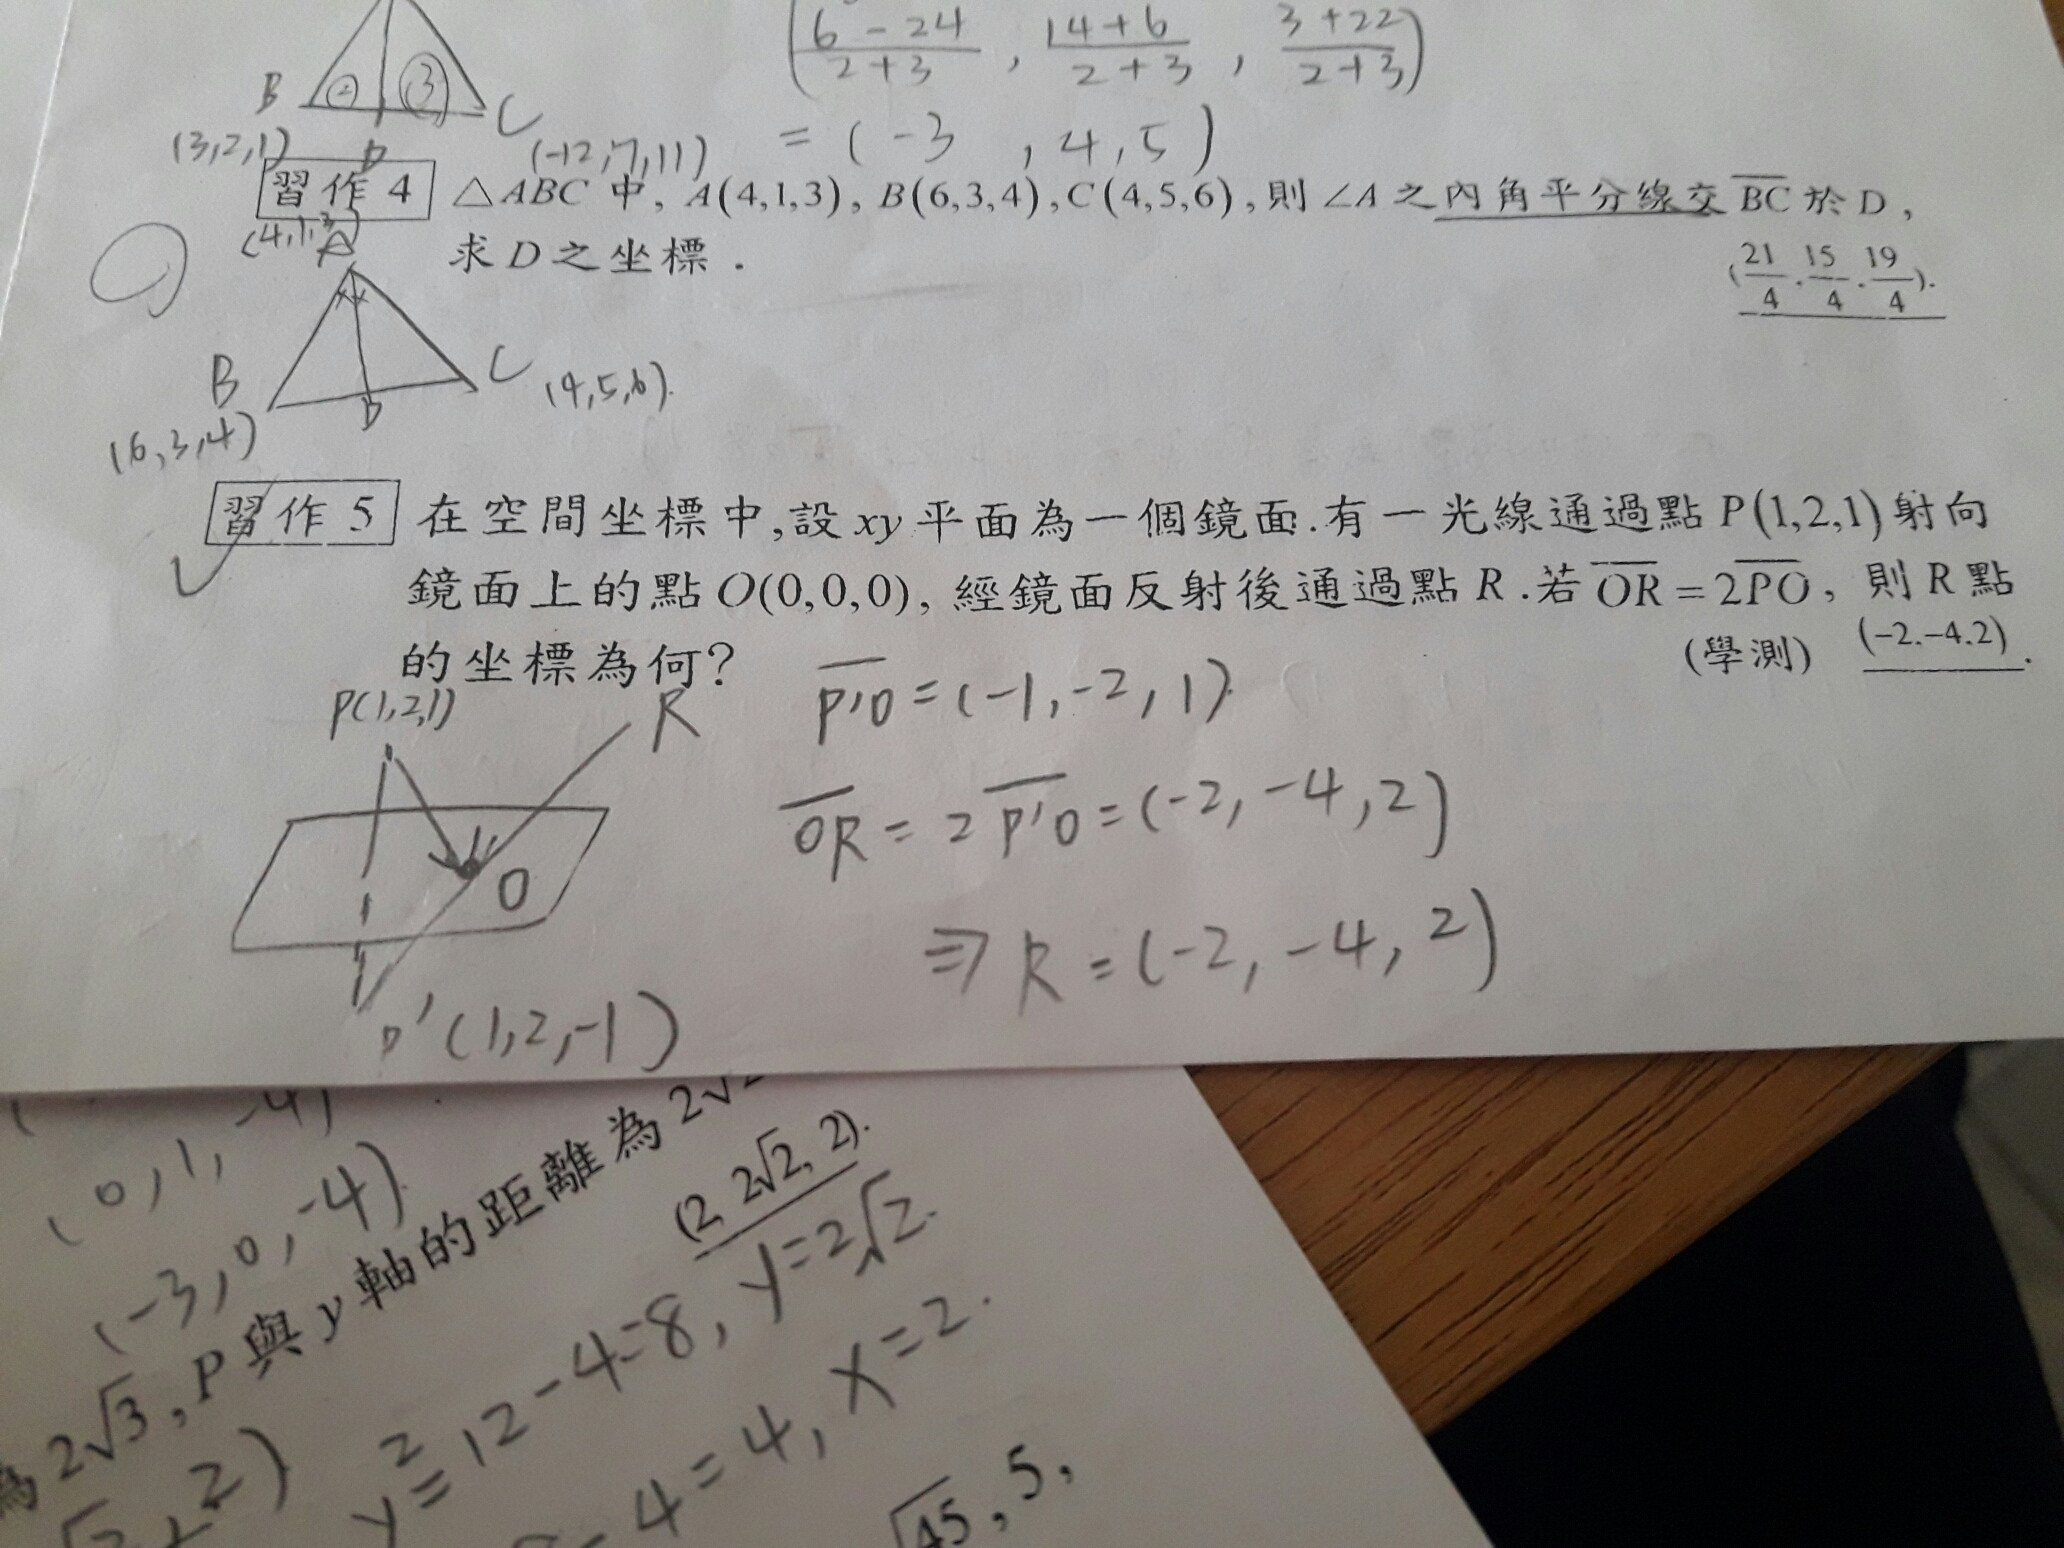 (6-24/2+3, 14+6/2+3, 3+22/2+3)
= (-3, 4, 5)
B ② ③ C
(3,2,1) D (-12,7,11)
習作 4 △ABC 中, A(4,1,3), B(6,3,4), C(4,5,6), 則 ∠A 之內角平分線交 BC 於 D,
求 D 之坐標.
(21/4, 15/4, 19/4).
(4,1,3)
A
B D C (4,5,6).
(6,3,4)
習作 5 在空間坐標中, 設 xy 平面為一個鏡面. 有一光線通過點 P(1,2,1) 射向
鏡面上的點 O(0,0,0), 經鏡面反射後通過點 R. 若 OR = 2PO, 則 R 點
的坐標為何? (學測) (-2.-4.2).
P(1,2,1) R
O
P'(1,2,-1)
P'O = (-1,-2,1).
OR = 2P'O = (-2,-4,2)
⇒ R = (-2,-4,2)
(0,1,-4)
(-3,0,-4).
為 2√3, P 與 y 軸的距離為 2√2
(2, 2√2, 2).
y²=12-4=8, y=2√2.
-4=4, x=2.
√45, 5,